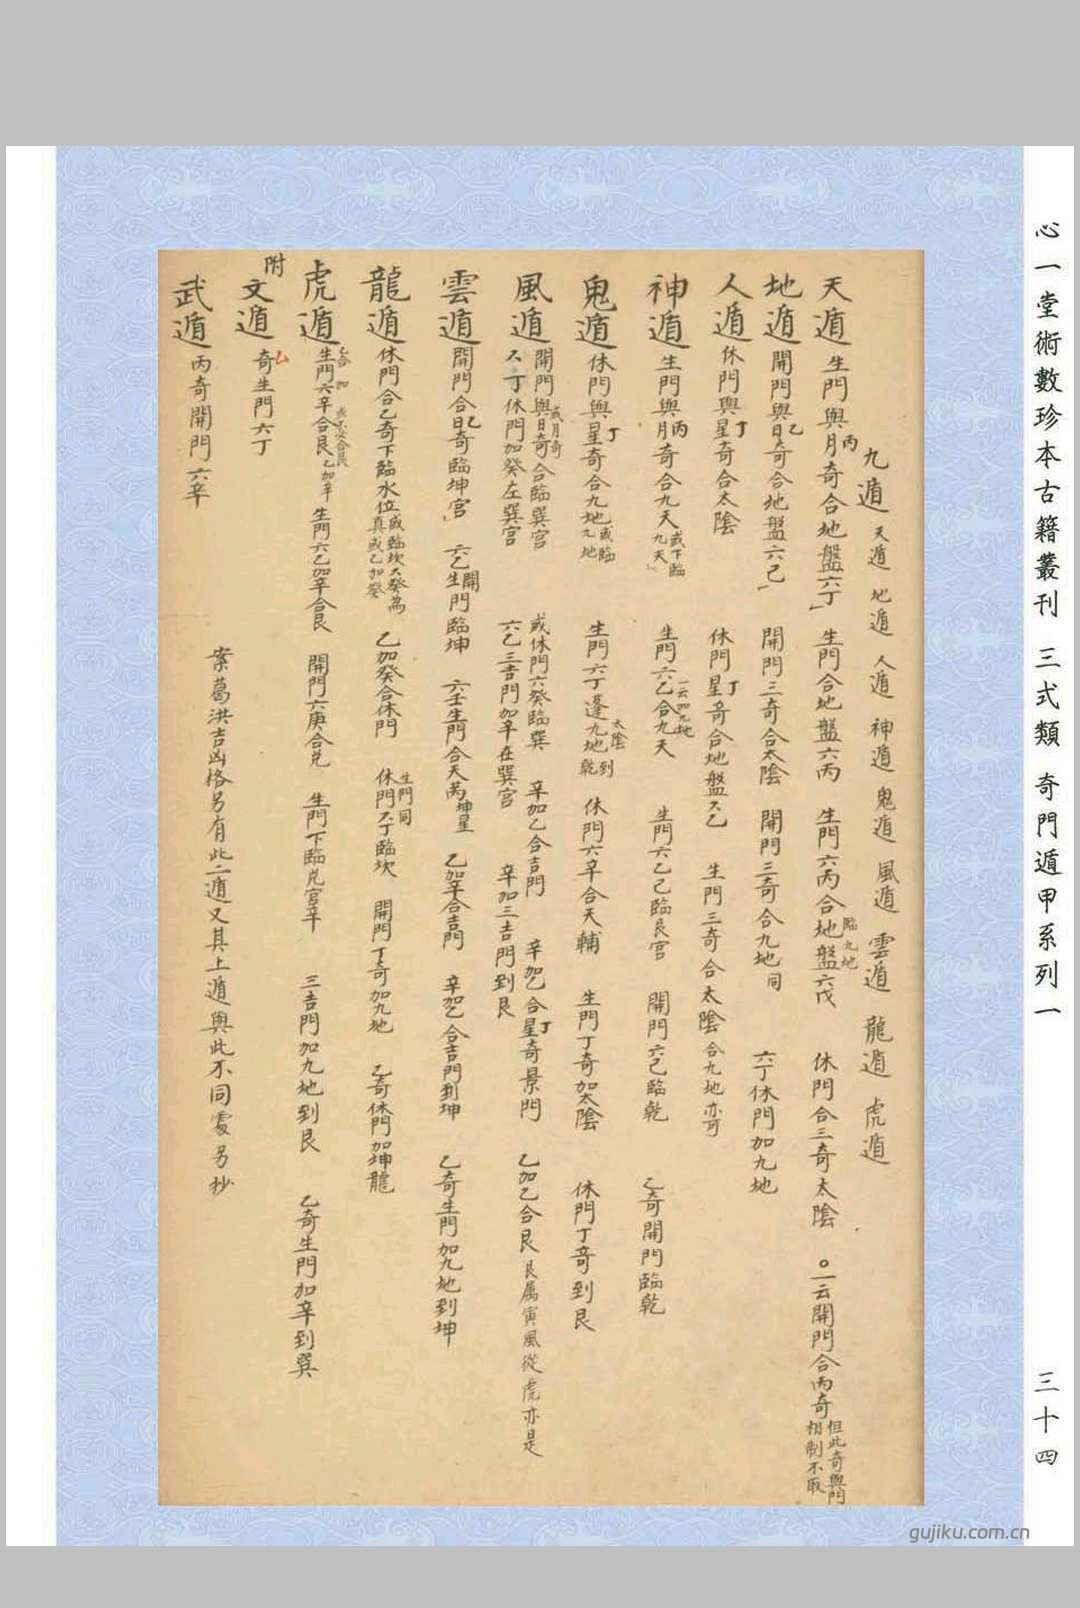 心一堂術數珍本古籍叢刊 三式類 奇門遁甲系列一
三十四
九遁 天遁 地遁 人遁 神遁 鬼遁 風遁 雲遁 龍遁 虎遁
天遁 生門與月丙奇合地盤六丁 生門合地盤六丙 生門六丙合地盤六戊臨九地 休門合三奇太陰 〇一云開門合丙奇但此奇與門相制不取
地遁 開門與日乙奇合地盤六己 開門三奇合太陰 開門三奇合九地同 六丁休門加九地
人遁 休門與星丁奇合太陰 休門星丁奇合地盤六乙 生門三奇合太陰合九地亦可
神遁 生門與月丙奇合九天或下臨九天 生門六乙合九天一云加九地 生門六乙己臨艮宮 開門六己臨乾 乙奇開門臨乾
鬼遁 休門與星丁奇合九地或臨九地 生門六丁逢九地太陰到乾 休門六辛合天輔 生門丁奇加太陰 休門丁奇到艮
風遁 開門與日奇或月奇合臨巽宮 或休門六癸臨巽 辛加乙合吉門 辛加乙合星丁奇景門 乙加乙合艮艮屬寅風從虎亦是
六丁休門加癸在巽宮 六乙三吉門加辛在巽宮 辛加三吉門到艮
雲遁 開門合日乙奇臨坤宮 六乙生開門臨坤 六壬生門合天芮坤星 乙加辛合吉門 辛加乙合吉門到坤 乙奇生門加九地到坤
龍遁 休門合乙奇下臨水位或臨坎六癸為真或乙加癸 乙加癸合休門 休門六丁臨坎生門同 開門丁奇加九地 乙奇休門加坤龍
虎遁 生門六辛合艮乙加辛 生門六乙加辛合艮 開門六庚合兌 生門下臨兌宮辛 三吉門加九地到艮 乙奇生門加辛到巽
附
文遁 奇生門六丁
案葛洪吉凶格另有此二遁又其上遁與此不同處另抄
武遁 丙奇開門六辛
gujiku.com.cn